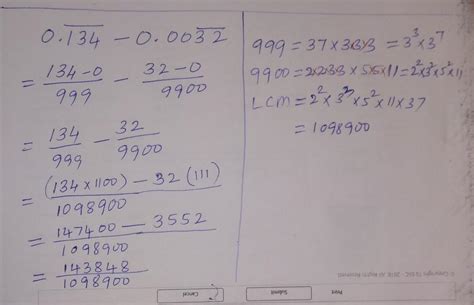 0.1̅3̅4̅ − 0.003̅2̅
= 134−0/999 − 32−0/9900
= 134/999 − 32/9900
= (134×1100) − 32 (111)/1098900
= 147400 − 3552/1098900
= 143848/1098900
999 = 37×3×3×3 = 3³×3⁷
9900 = 2×2×3×3×5×5×11 = 2²×3²×5²×11
LCM = 2²×3³×5²×11×37
= 1098900
Print
Submit
Cancel